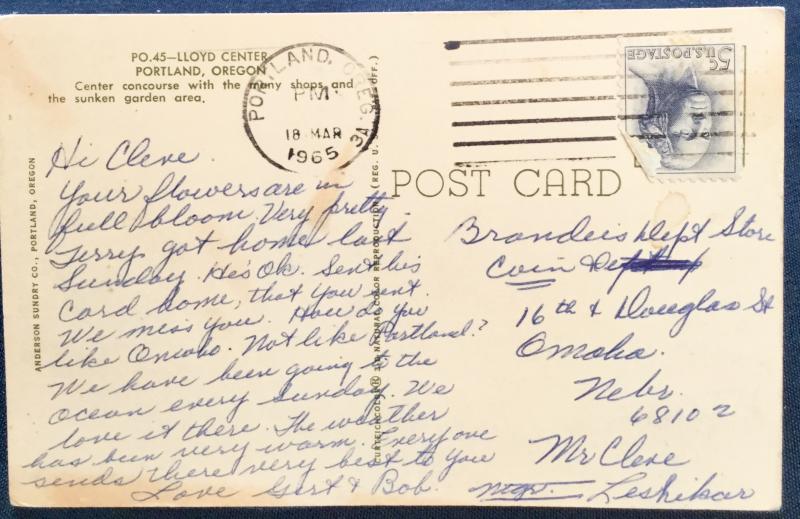 PO.45—LLOYD CENTER
PORTLAND, OREGON
Center concourse with the many shops and
the sunken garden area.
PORTLAND, OREG.
PM
18 MAR
1965
3A
5c U.S. POSTAGE
POST CARD
ANDERSON SUNDRY CO., PORTLAND, OREGON
CURTEICHCOLOR® 3-D NATURAL COLOR REPRODUCTION (REG. U. S. PAT. OFF.)
Hi Cleve.
Your flowers are in
full bloom. Very pretty.
Terry got home last
Sunday. He's Ok. Sent his
card home, that you sent.
We miss you. How do you
like Omaha. Not like Portland?
We have been going to the
ocean every Sunday. We
love it there. The weather
has been very warm. Everyone
sends there very best to you
Love Gert & Bob.
Brandeis Dept Store
Coin Dept
16th & Douglas St
Omaha.
Nebr.
68102
Mr Cleve
Mgr. Leshikar